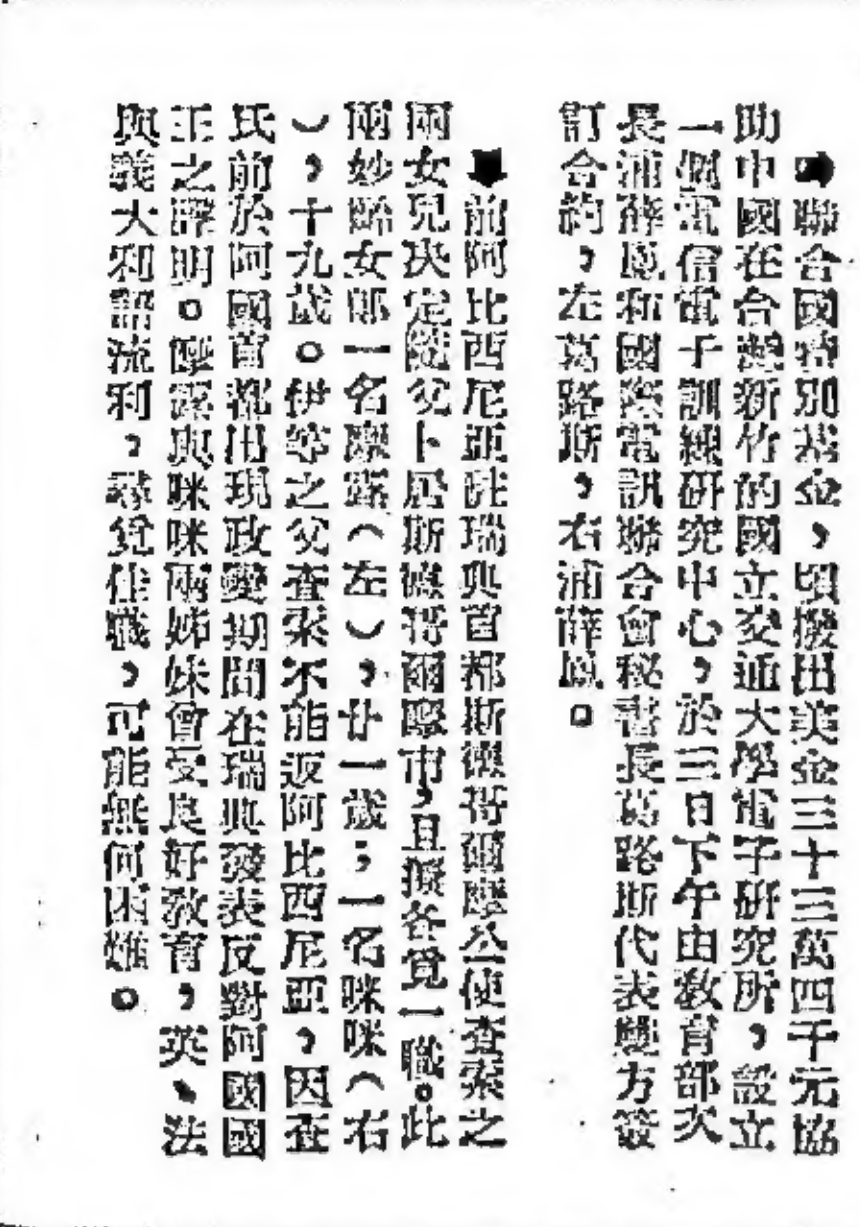 ➡聯合國特別基金，頃撥出美金三十三萬四千元協
助中國在台灣新竹的國立交通大學電子研究所，設立
一個電信電子訓練研究中心，於三日下午由教育部次
長浦薛鳳和國際電訊聯合會秘書長葛路斯代表雙方簽
訂合約，左葛路斯，右浦薛鳳。
⬇前阿比西尼亞駐瑞典首都斯德哥爾摩公使查索之
兩女兒決定隨父卜居斯德哥爾摩市，且擬各覓一職。此
兩妙齡女郎一名摩露（左），廿一歲；一名咪咪（右
），十九歲。伊等之父查索不能返阿比西尼亞，因查
氏前於阿國首都出現政變期間在瑞典發表反對阿國國
王之聲明。摩露與咪咪兩姊妹曾受良好教育，英、法
與義大利語流利，尋覓佳職，可能無何困難。